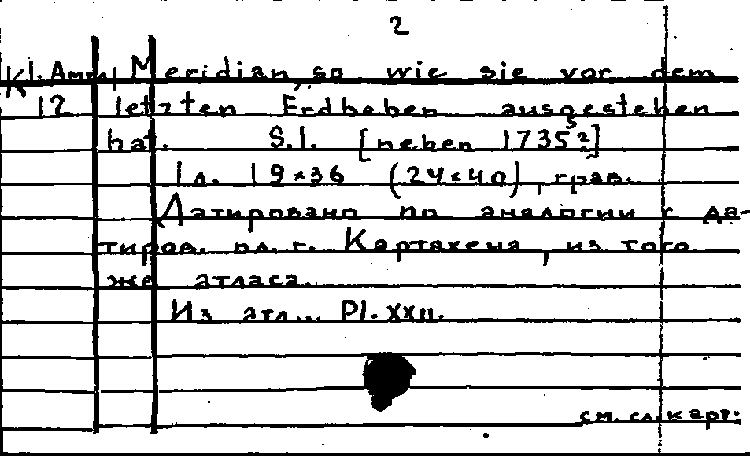 2
Kl. Амер. Meridian, so wie sie vor dem
12 letzten Erdbeben ausgestehen
hat. S.l. [neben 1735?]
1 л. 19×36 (24×40), грав.
Датировано по аналогии с да-
тиров. пл. г. Картахена, из того
же атласа.
Из атл... Pl. XXII.
см. сл. карт.